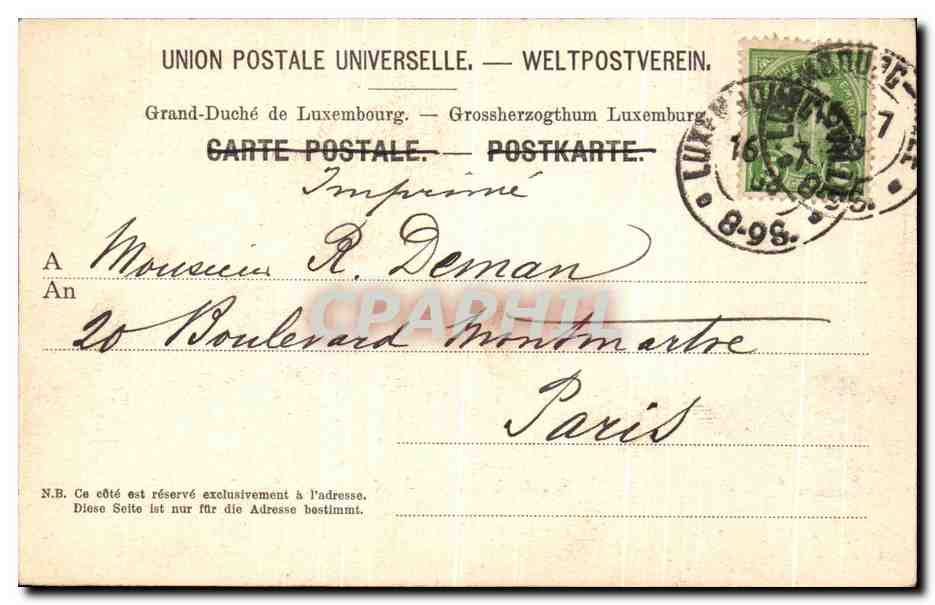 UNION POSTALE UNIVERSELLE. — WELTPOSTVEREIN.
Grand-Duché de Luxembourg. — Grossherzogthum Luxemburg.
CARTE POSTALE. — POSTKARTE.
Imprimé
A Monsieur R. Deman
An
20 Boulevard Montmartre
Paris
N.B. Ce côté est réservé exclusivement à l'adresse.
Diese Seite ist nur für die Adresse bestimmt.
8-9S.
CPAPHIL